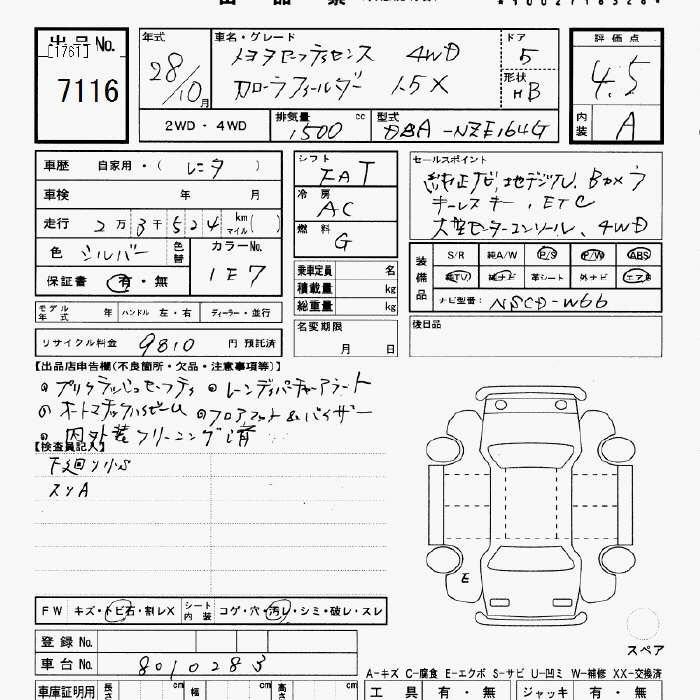 出品票
*10027165286*
出品No. [1761]
7116
年式 28/10月
車名・グレード トヨタセーフティセンス 4WD
カローラフィールダー 1.5X
ドア 5
形状 HB
評価点 4.5
内装 A
2WD・4WD
排気量 1500 cc
型式 DBA-NZE164G
車歴 自家用・(レンタ)
車検 年 月
走行 2万3千524 km マイル( )
色 シルバー 色替 カラーNo. 1E7
保証書 有・無
シフト FAT
冷房 AC
燃料 G
乗車定員 名
積載量 kg
総重量 kg
セールスポイント
純正ナビ,地デジTV,Bカメラ
キーレスキー,ETC
大型センターコンソール,4WD
装備品 S/R 純A/W P/S P/W ABS
純TV 純ナビ 革シート 外ナビ エアB
ナビ型番: NSCD-W66
モデル年式 年 ハンドル 左・右 ディーラー・並行
リサイクル料金 9810 円 預託済
名変期限 月 日
後日品
【出品店申告欄(不良箇所・欠品・注意事項等)】
プリクラッシュセーフティ レーンディパーチャーアラート
オートマチックハイビーム フロアマット&バイザー
内外装クリーニング済
【検査員記入】
下廻りサビ
スリA
E
FW キズ・トビ石・割レX シート内装 コゲ・穴・汚レ・シミ・破レ・スレ
スペア
登録No.
車台No. 8010283
A-キズ C-腐食 E-エクボ S-サビ U-凹ミ W-補修 XX-交換済
車庫証明用 長さ cm 幅 cm 高さ cm
工具 有・無 ジャッキ 有・無